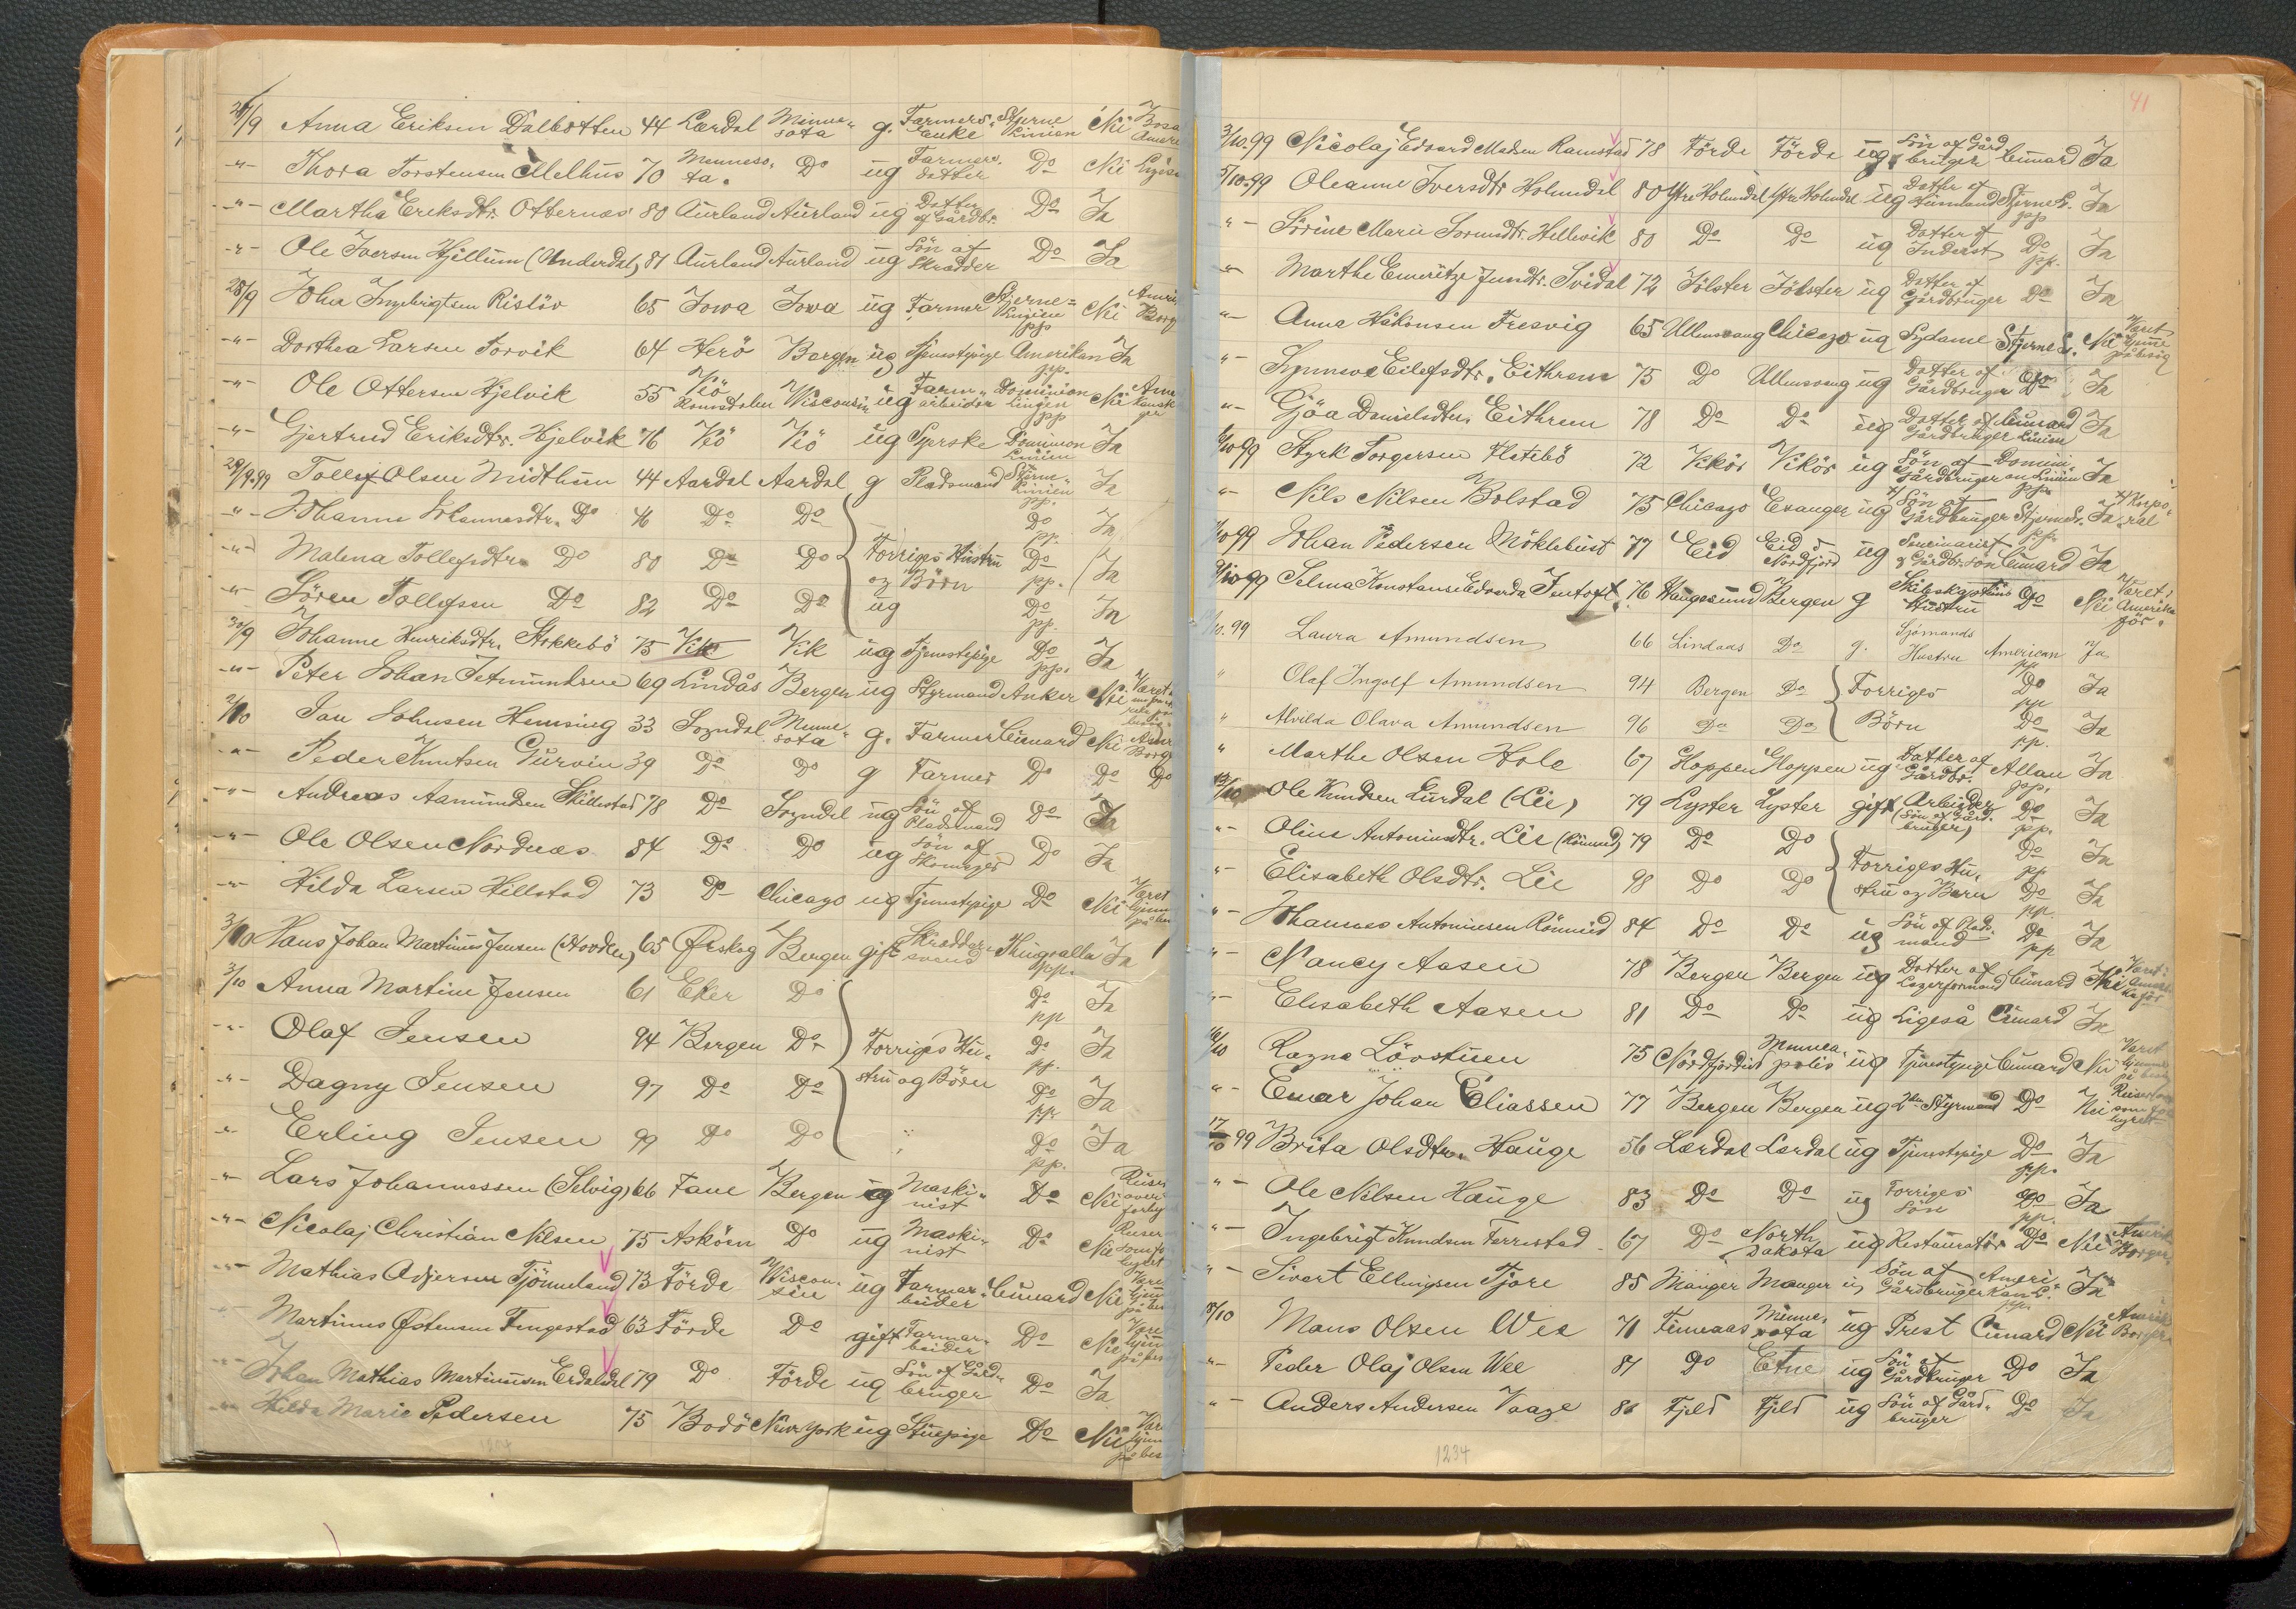 27/9 Anna Eriksen Dalbotten 44 Lærdal Minnesota g. Farmers Enke Stjerne Linien Nei Bosa Amere
-"- Thora Torstensen Melhus 70 Minnesota. Do ug Farmers datter Do Nei Ligesa
-"- Martha Eriksdtr. Otternæs 80 Aurland Aurland ug Datter af Gårdbr. Do Ja
-"- Ole Iversen Hjellum (Underdal) 81 Aurland Aurland ug Sön af Skrædder Do Ja
28/9 John Ingebrigtsen Ristöv 65 Iowa Iowa ug Farmer Stjerne= Linjien pp Nei Ameri Borg
-"- Dorthea Larsen Torvik 64 Herö Bergen ug Tjenestepige Amerikan pp. Ja
-"- Ole Ottersen Hjelvik 55 Vö Romsdalen Wisconsin ug Farm arbeider Dominion linjen pp Nei Ame kansk ger
-"- Gjertrud Eriksdtr. Hjelvik 76 Vö Vö ug Syerske Dominion Linien Ja
29/9.99 Tollef Olsen Midthun 44 Aardal Aardal g Pladsmand Stjerne Linien pp. Ja
-"- Johanne Johannesdtr. Do 46 Do Do Do pp. Ja
-"- Malena Tollefsdtr. Do 80 Do Do Forriges Hustru og Börn Do pp. Ja
-"- Sören Tollefsen Do 82 Do Do ug Do pp. Ja
30/9 Johanne Henriksdtr. Stokkebö 75 Vik Vik ug Tjenestepige Do pp. Ja
-"- Peter Johan Jetmundsen 69 Lindås Bergen ug Styrmand Anker Nei Været
2/10 Jan Johnsen Hemsing 33 Sogndal Minnesota g. Farmer Cunard Nei Amer Borg
-"- Peder Knutsen Gurvin 39 Do Do g Farmer Do Do Do
-"- Andreas Aamundsen Skillestad 78 Do Sogndal ug Sön af Pladsmand Do Ja
-"- Ole Olsen Nordnæs 84 Do Do ug Sön af Skomager Do Ja
-"- Hilda Larsen Hillestad 73 Do Chicago ug Tjenestepige Do Nei Været hjemme på bes
3/10 Hans Johan Martinus Jensen (Hovden) 65 Ørskog Bergen gift Skrædder svend Thingvalla pp. Ja
3/10 Anna Martine Jensen 61 Eker Do Do pp Ja
-"- Olaf Jensen 94 Bergen Do Forriges Hustru og Börn Do pp. Ja
-"- Dagny Jensen 97 Do Do Do pp. Ja
-"- Erling Jensen 99 Do Do Do pp. Ja
-"- Lars Johannessen (Selvig) 66 Fane Bergen ug Maskinist Do Nei Reiser over forhyr
-"- Nicolaj Christian Nilsen 75 Asköen Do ug Maskinist Do Nei Reiser som fo hyret
-"- Mathias Adjersen Tjönneland 73 Förde Wisconsin ug Farmarbeider Cunard Nei Været hjem på bes
Martinus Østensen Fengestad 63 Förde Do gift Farmarbeider Do Nei hjem på bes
-"- Johan Mathias Martinusen Erdaldal 79 Do Förde ug Sön af Gårdbruger Do Ja
-"- Hilda Marie Pedersen 75 Bodö New York ug Stuepige Do Nei Været hjem på bes
41
3/10.99 Nicolaj Edvard Madsen Ramstad 78 Förde Förde ug Sön af Gårdbruger Cunard Ja
5/10-99 Oleanne Iversdtr Holmedal 80 Ytre Holmedal Ytre Holmdal ug Datter af Husmand Stjerne L. pp Ja
"- Sörine Marie Sorensdtr. Hellevik 80 Do Do ug Datter af Inderst Do pp. Ja
"- Marthe Emeritze Jensdtr. Svidal 72 Jölster Jölster ug Datter af Gårdbruger Do Ja
"- Anna Håkonsen Fresvig 65 Ullensvang Chicago ug Sydame Stjerne L. Nei Været hjemme på besög
" Synneve Eilefsdtr. Eithrem 75 Do Ullensvang ug Datter af Gårdbruger Do Ja
"- Gjöa Danielsdtr. Eithrem 78 Do Do ug Datter af Gårdbruger Cunard Linien Ja
6/10 99 Styrk Torgersen Flatebö 72 Vikör Vikör ug Sön af Gårdbruger Dominion Linien pp. Ja
"- Nils Nilsen Bolstad 75 Chicago Evanger ug Sön af Gårdbruger Stjerne L. pp. Ja Korporal
7/10 99 Johan Pedersen Möklebust 77 Eid Eid i Nordfjord ug Seminarist & Gårdbr. sön Cunard Ja
9/10-99 Selma Konstanse Edvarda Jentoft 76 Haugesund Bergen g Skibskaptains Hustru Do Nei Været i Amerika för.
10. 99 Laura Amundsen 66 Lindaas Do g. Sjömands Hustru American pp Ja
" Olaf Ingolf Amundsen 94 Bergen Do Forriges Do pp Ja
" Alvilda Olava Amundsen 96 Do Do Börn Do pp. Ja
" Marthe Olsen Hole 67 Gloppen Gloppen ug Datter af Gårdbr. Allan pp. Ja
13/10 Ole Knudsen Eurdal (Lie) 79 Lyster Lyster gift Arbeider (Sön af Gårdbruger) Do pp. Ja
"- Oline Antoniusdtr. Lie (Rönneid) 79 Do Do Do pp Ja
"- Elisabeth Olsdtr. Lie 98 Do Do Forriges Hustru og Barn Do pp. Ja
"- Johannes Antoniusen Rönneid 84 Do Do ug Sön af Pladsmand Do pp Ja
"- Nancy Aasen 78 Bergen Bergen ug Datter af Lagerformand Cunard Nei Været i Amerika för
"- Elisabeth Aasen 81 Do Do ug Ligeså Cunard Ja
16/10 Ragna Lövstuen 75 Nordfjordeid Minneapolis ug Tjenestepige Cunard Nei Været hjemme på besög
"- Einar Johan Eliassen 77 Bergen Bergen ug 2den Styrmand Do Nei Reiser som for hyret
17/10 99 Brita Olsdtr. Hauge 56 Lærdal Lærdal ug Tjenestepige Do pp. Ja
"- Ole Nilsen Hauge 83 Do Do ug Forriges Sön Do pp. Ja
"- Ingebrigt Knudsen Ferrestad 67 Do North Dakota ug Restauratör Do Nei Amerik Borger
"- Sivert Ellingsen Fjore 85 Manger Manger ug Sön af Gårdbruger Amerikan L. pp. Ja
18/10 Mons Olsen Wee 71 Finnaas Minnesota ug Prest Cunard Nei Amerik Borger
"- Peder Olaj Olsen Wee 81 Do Etne ug Sön af Gårdbruger Do Ja
"- Anders Andersen Vaage 81 Fjeld Fjeld ug Sön af Gårdbruger Do Ja
1234